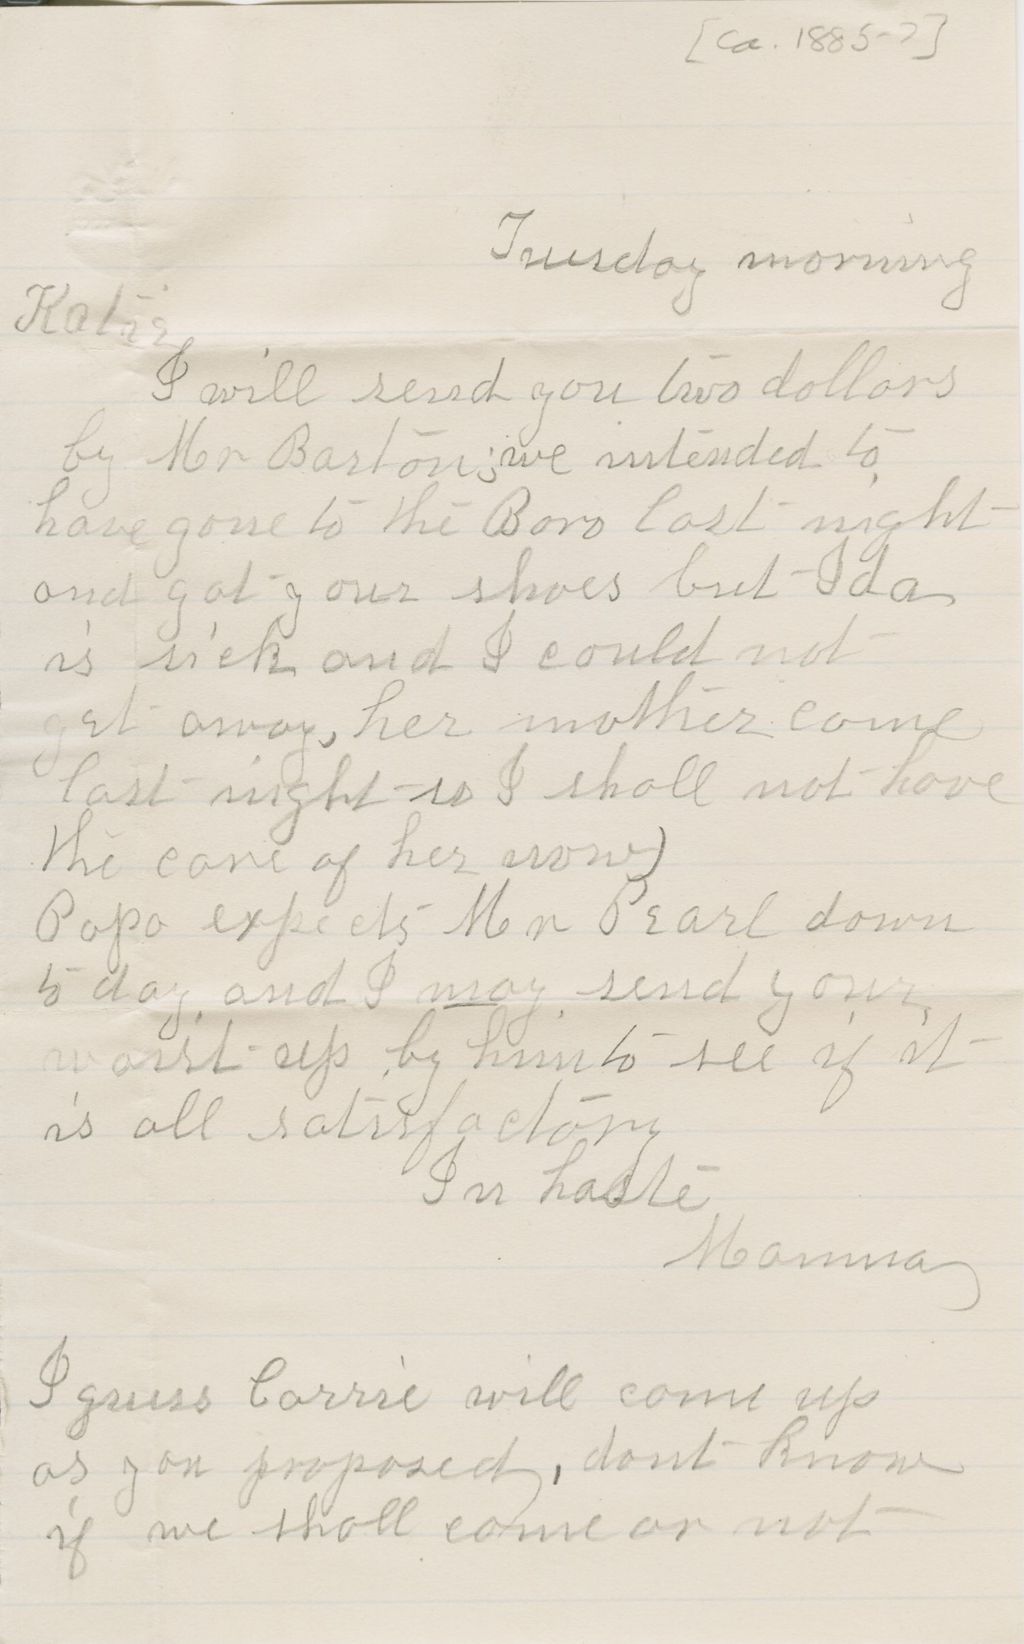 [ca. 1885-7]
Tuesday morning
Katie
I will send you two dollars
by Mr Barton; we intended to
have gone to the Boro last night
and got your shoes but Ida
is sick and I could not
get away, her mother come
last night so I shall not have
the care of her now)
Papa expects Mr Pearl down
to day and I may send your
waist up by him to see if it
is all satisfactory
In haste
Mamma
I guess Carrie will come up
as you proposed, dont know
if we shall come or not